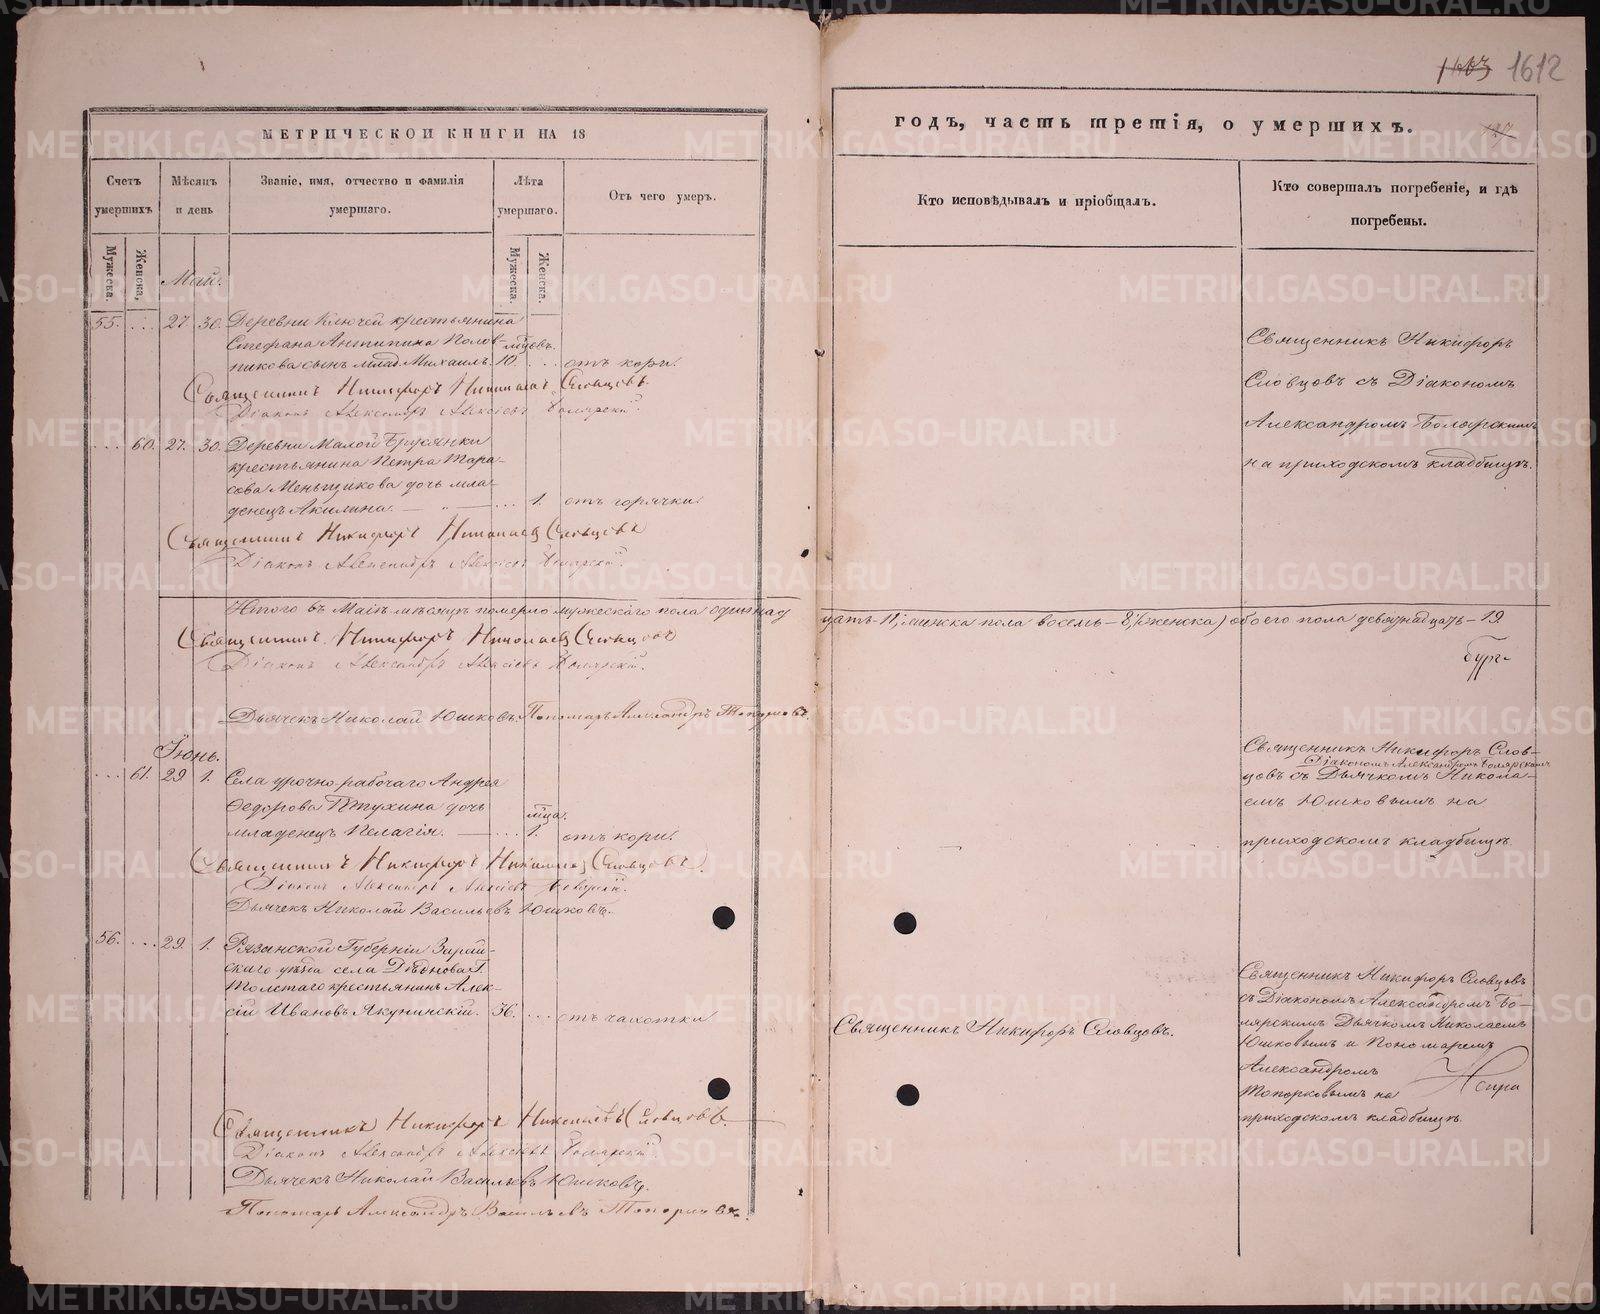 1612
МЕТРИЧЕСКОЙ КНИГИ НА 18
годъ, часть третія, о умершихъ.
Счетъ умершихъ
Мѣсяцъ и день
Званіе, имя, отчество и фамилія умершаго.
Лѣта умершаго.
Отъ чего умеръ.
Кто исповѣдывалъ и пріобщалъ.
Кто совершалъ погребеніе, и гдѣ погребены.
Мужеска.
Женска,
Мужеска.
Женска.
Май.
55. ... 27. 30. Деревни Ключей крестьянина
Стефана Антипина Полов- мцовъ.
никова сынъ млад. Михаилъ. 10. .. отъ кори.
Священникъ Никифоръ Николаевъ Словцовъ.
Діаконъ Александръ Алексіевъ Болярскій.
Священникъ Никифоръ
Словцовъ съ Діакономъ
Александромъ Болярскимъ
на приходскомъ кладбищѣ.
... 60. 27. 30. Деревни Малой Брусянки
крестьянина Петра Тара-
сова Меньщикова дочь мла-
денецъ Акилина. — " — ... 1. отъ горячки.
Священникъ Никифоръ Николаевъ Словцовъ
Діаконъ Александръ Алексіевъ Болярскій.
Итого въ Маіѣ мѣсяцѣ померло мужескаго пола одиннад
цать - 11, женска пола восемь - 8, (женска) обоего пола девятнадцать - 19
Священникъ Никифоръ Николаевъ Словцовъ
Діаконъ Александръ Алексіевъ Болярскій.
Дьячекъ Николай Юшковъ. Пономарь Александръ Топорковъ.
Іюнь.
... 61. 29 1. Села урочно рабочаго Андрея
Ѳедорова Птухина дочь мца.
младенецъ Пелагія. — ... 1. отъ кори.
Священникъ Никифоръ Николаевъ Словцовъ.
Діаконъ Александръ Алексіевъ Болярскій.
Дьячекъ Николай Васильевъ Юшковъ.
Священникъ Никифоръ Слов-
Діакономъ Александромъ Болярскимъ
цовъ съ Дьячкомъ Никола-
емъ Юшковымъ на
приходскомъ кладбищѣ.
56. ... 29. 1. Рязанской Губерніи Зарай-
скаго уѣзда села Дѣднова Г.
Толстаго крестьянинъ Алек-
сій Ивановъ Якунинскій. 36. ... отъ чахотки
Священникъ Никифоръ Словцовъ.
Священникъ Никифоръ Словцовъ
съ Діакономъ Александромъ Бо-
лярскимъ Дьячкомъ Николаемъ
Юшковымъ и Пономаремъ
Александромъ
Топорковымъ на
приходскомъ кладбищѣ.
Священникъ Никифоръ Николаевъ Словцовъ.
Діаконъ Александръ Алексіевъ Болярскій
Дьячекъ Николай Васильевъ Юшковъ.
Пономарь Александръ Васильевъ Топорковъ.
METRIKI.GASO-URAL.RU